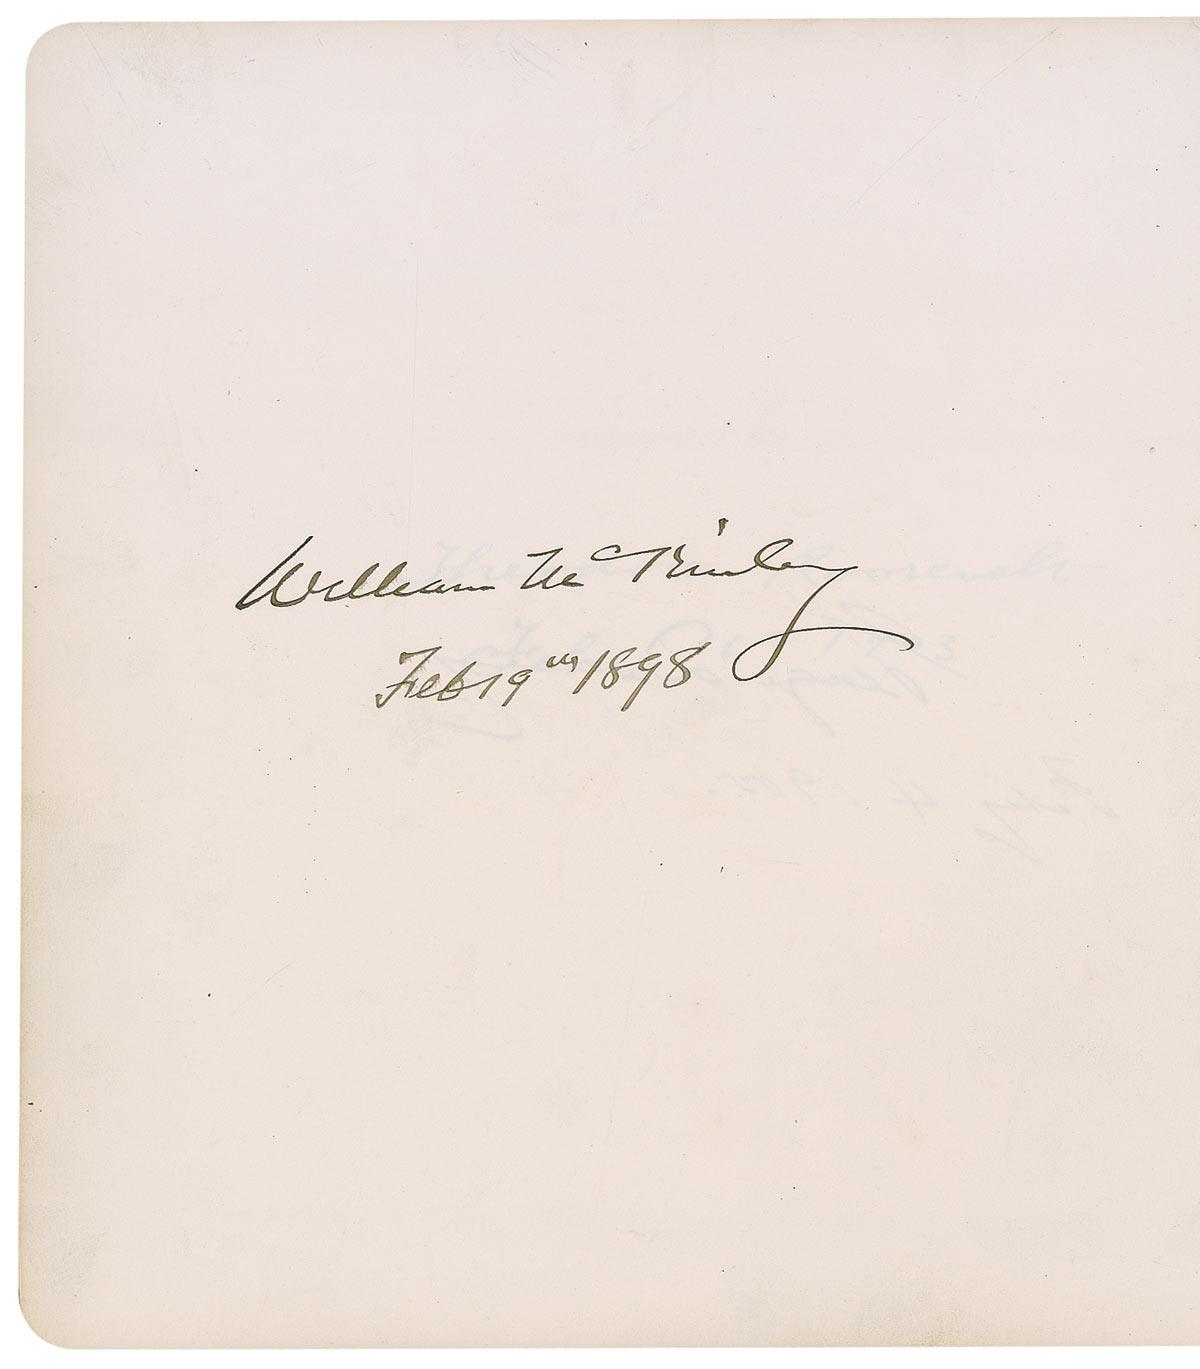 William McKinley
Feb 19th 1898